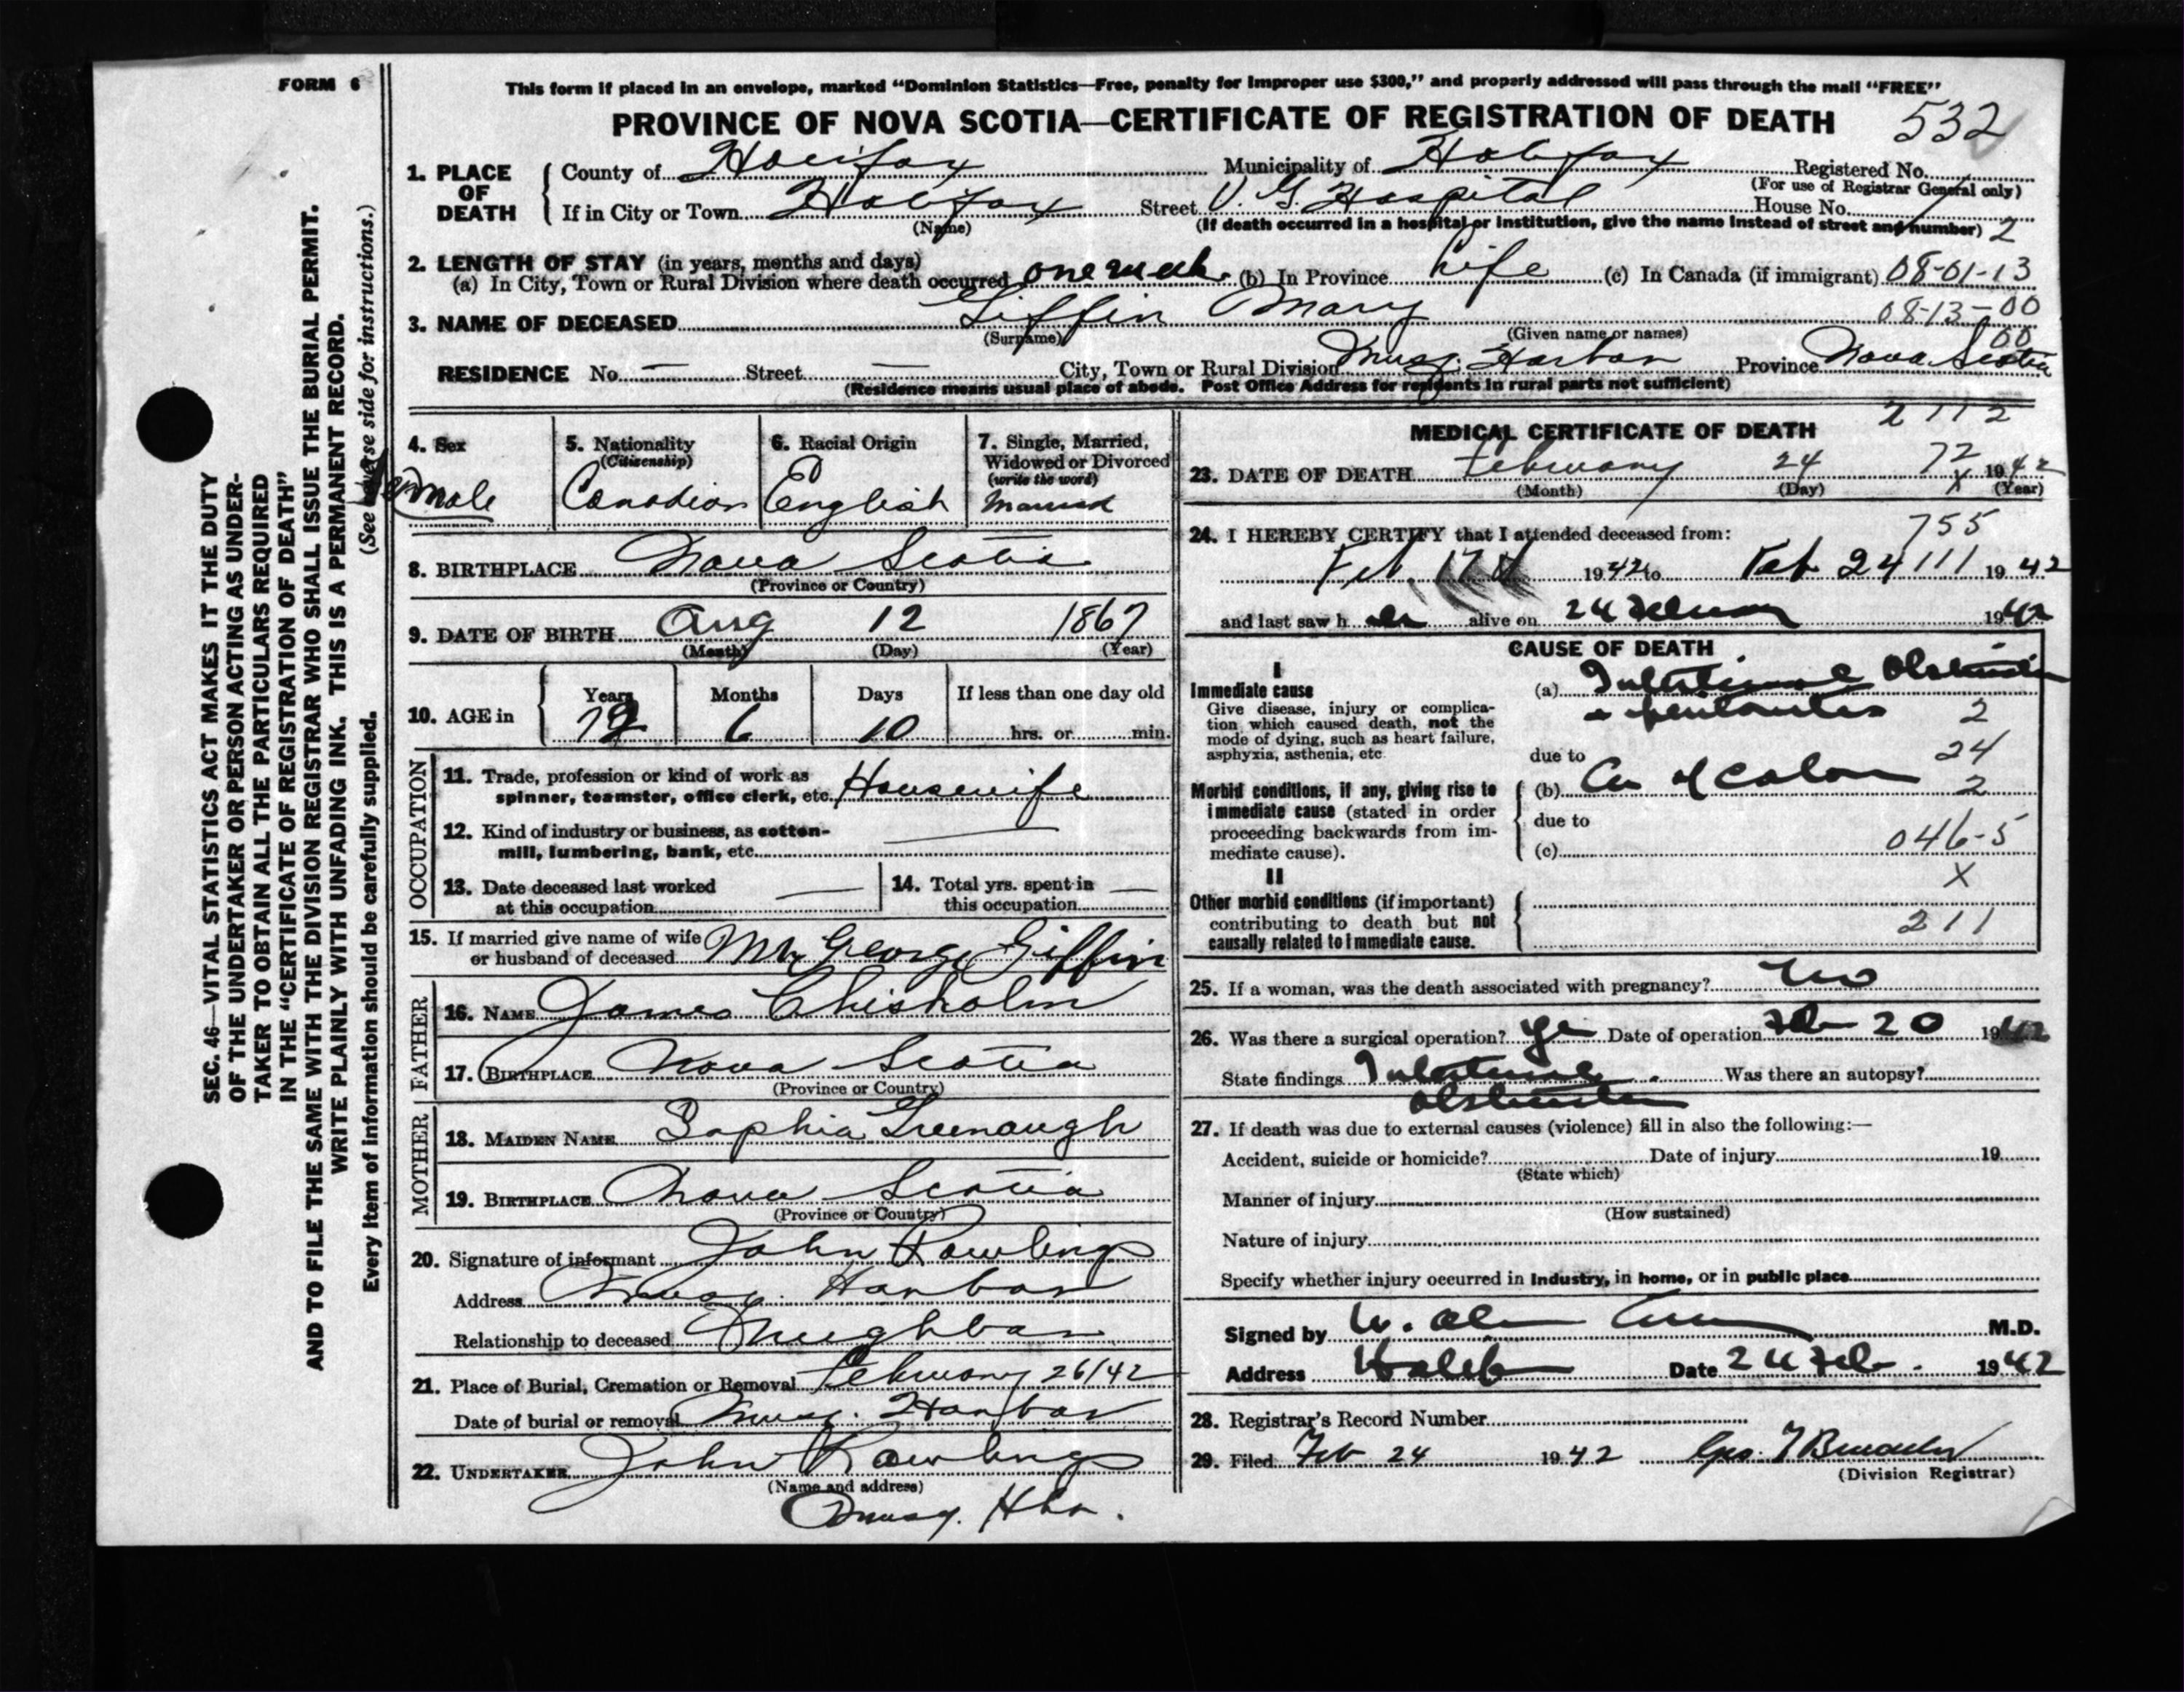 FORM 6
This form if placed in an envelope, marked "Dominion Statistics—Free, penalty for improper use $300," and properly addressed will pass through the mail "FREE"
PROVINCE OF NOVA SCOTIA—CERTIFICATE OF REGISTRATION OF DEATH 532
1. PLACE OF DEATH
County of Halifax Municipality of Halifax Registered No.
(For use of Registrar General only)
If in City or Town Halifax Street V. G. Hospital House No.
(Name) (If death occurred in a hospital or institution, give the name instead of street and number) 2
2. LENGTH OF STAY (in years, months and days)
(a) In City, Town or Rural Division where death occurred one week (b) In Province Life (c) In Canada (if immigrant) 08-01-13
08-13-00
3. NAME OF DECEASED Giffin Mary
(Surname) (Given name or names) 00
RESIDENCE No. — Street — City, Town or Rural Division Musq. Harbor Province Nova Scotia
(Residence means usual place of abode. Post Office Address for residents in rural parts not sufficient)
4. Sex
Female
5. Nationality
(Citizenship)
Canadian
6. Racial Origin
English
7. Single, Married,
Widowed or Divorced
(write the word)
Married
8. BIRTHPLACE Nova Scotia
(Province or Country)
9. DATE OF BIRTH Aug 12 1867
(Month) (Day) (Year)
10. AGE in
Years Months Days If less than one day old
6 10 hrs. or min.
OCCUPATION
11. Trade, profession or kind of work as
spinner, teamster, office clerk, etc. Housewife
12. Kind of industry or business, as cotton-
mill, lumbering, bank, etc. —
13. Date deceased last worked
at this occupation —
14. Total yrs. spent in
this occupation —
15. If married give name of wife
or husband of deceased Mr George Giffin
FATHER
16. NAME James Chisholm
17. BIRTHPLACE Nova Scotia
(Province or Country)
MOTHER
18. MAIDEN NAME Sophia Greenough
19. BIRTHPLACE Nova Scotia
(Province or Country)
20. Signature of informant John Rowlings
Address Musq. Harbor
Relationship to deceased Neighbor
21. Place of Burial, Cremation or Removal February 26/42
Date of burial or removal Musq. Harbor
22. UNDERTAKER John Rowlings
(Name and address)
Musq. Hbr.
2112
MEDICAL CERTIFICATE OF DEATH
23. DATE OF DEATH February 24 72 1942
(Month) (Day) X (Year)
755
24. I HEREBY CERTIFY that I attended deceased from:
Feb. 17 1942 to Feb 24 111 1942
and last saw her alive on 24 February 1942
CAUSE OF DEATH
I
Immediate cause
Give disease, injury or complica-
tion which caused death, not the
mode of dying, such as heart failure,
asphyxia, asthenia, etc.
(a) Intestinal Obstruction
+ peritonitis 2
due to 24
Morbid conditions, if any, giving rise to
immediate cause (stated in order
proceeding backwards from im-
mediate cause).
(b) Ca of Colon 2
due to
(c) 046-5
X
II
Other morbid conditions (if important)
contributing to death but not
causally related to immediate cause.
211
25. If a woman, was the death associated with pregnancy? No
26. Was there a surgical operation? Yes Date of operation Feb 20 1942
State findings Intestinal Was there an autopsy?
Obstruction
27. If death was due to external causes (violence) fill in also the following:—
Accident, suicide or homicide? Date of injury 19
(State which)
Manner of injury
(How sustained)
Nature of injury
Specify whether injury occurred in industry, in home, or in public place
Signed by W. M.D.
Address Halifax Date 24 Feb. 1942
28. Registrar's Record Number
29. Filed Feb 24 1942 Geo.
(Division Registrar)
SEC. 46—VITAL STATISTICS ACT MAKES IT THE DUTY
OF THE UNDERTAKER OR PERSON ACTING AS UNDER-
TAKER TO OBTAIN ALL THE PARTICULARS REQUIRED
IN THE "CERTIFICATE OF REGISTRATION OF DEATH"
AND TO FILE THE SAME WITH THE DIVISION REGISTRAR WHO SHALL ISSUE THE BURIAL PERMIT.
WRITE PLAINLY WITH UNFADING INK. THIS IS A PERMANENT RECORD.
Every item of information should be carefully supplied. (See reverse side for instructions.)